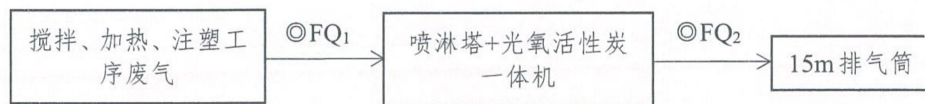 搅拌、加热、注塑工
序废气
◎FQ₁
喷淋塔+光氧活性炭
一体机
◎FQ₂
15m 排气筒